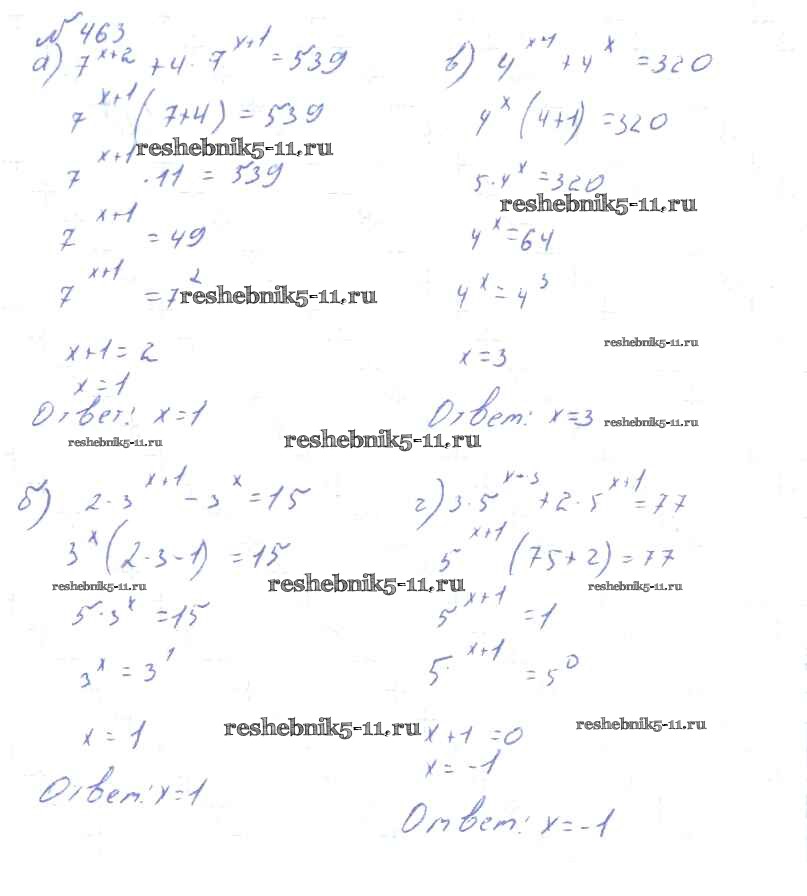 № 463
а) 7^(x+2) + 4 · 7^(x+1) = 539
7^(x+1) (7+4) = 539
reshebnik5-11.ru
7^(x+1) · 11 = 539
7^(x+1) = 49
7^(x+1) = 7^2
reshebnik5-11.ru
x+1 = 2
x = 1
Ответ: x=1
reshebnik5-11.ru
в) 4^(x+1) + 4^x = 320
4^x (4+1) = 320
5·4^x = 320
reshebnik5-11.ru
4^x = 64
4^x = 4^3
reshebnik5-11.ru
x = 3
Ответ: x=3
reshebnik5-11.ru
reshebnik5-11.ru
б) 2·3^(x+1) - 3^x = 15
3^x (2·3-1) = 15
reshebnik5-11.ru
reshebnik5-11.ru
5·3^x = 15
3^x = 3^1
x = 1
reshebnik5-11.ru
Ответ: x=1
г) 3·5^(x+3) + 2·5^(x+1) = 77
5^(x+1) (75+2) = 77
reshebnik5-11.ru
5^(x+1) = 1
5^(x+1) = 5^0
reshebnik5-11.ru
x+1 = 0
x = -1
Ответ: x=-1